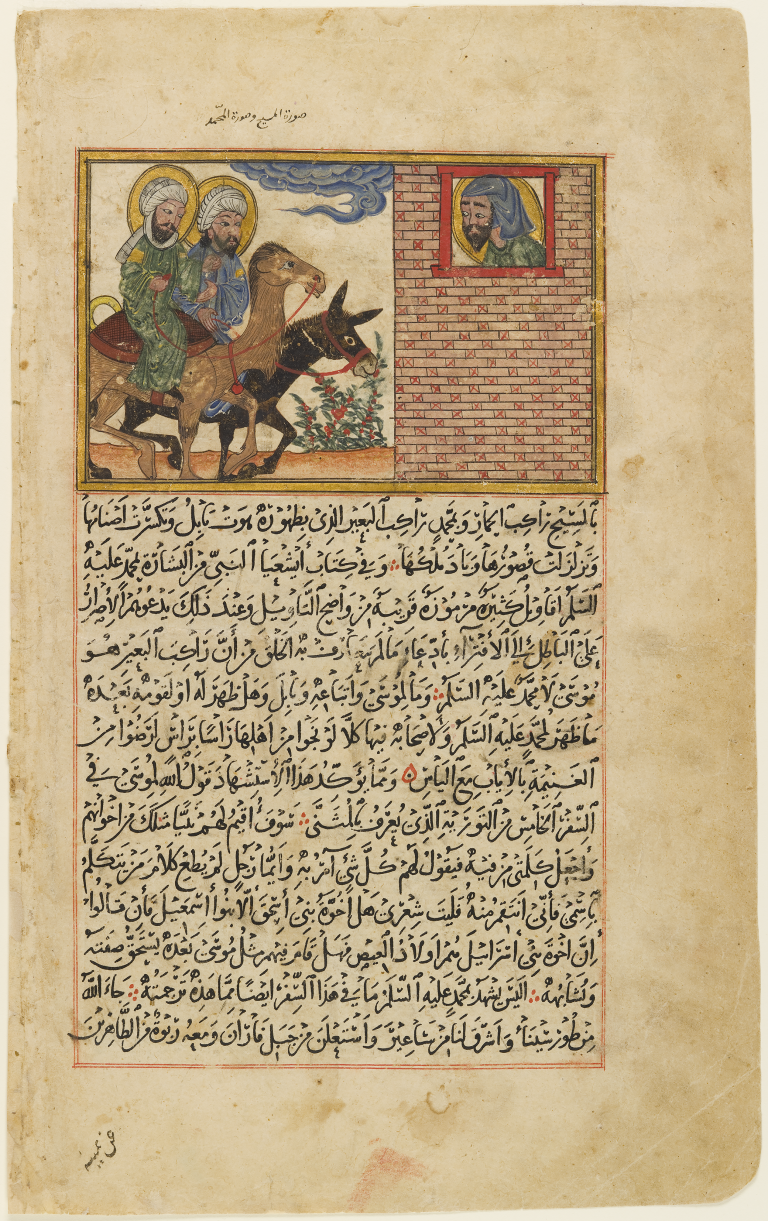 صورة المسيح وصورة المحمد
بالمسيح راكب الحمار وبمحمد راكب البعير الذى بظهوره هوت بابل وتكسرت اصنامها
وتزلزلت قصورها وباد ملكها وفى كتاب أشعيا النبى من البشارة بمحمد عليه
السلم اقاويل كثيرة مرموزة قريبة من واضح التاويل وعند ذلك يدعوهم الاصرار
على الباطل الى الافتراء بادعاء مالم يتعارف به الخلق من أن راكب البعير هو
موسى لا محمد عليه السلم وما لموسى واتباعه وبابل وهل ظهر له او لقومه بعده
ما ظهر لمحمد عليه السلم ولاصحابه فيها كلا لو نجوا من اهلها راسا براس لرضوا من
الغنيمة بالأياب مع الياس ومما يؤكد هذا الاستشهاد قول الله لموسى فى
السفر الخامس من التورية الذى يعرف بالمثنى سوف أقيم لهم نبيا مثلك من اخوانهم
وأجعل كلمتى فى فيه فيقول لهم كل شئ آمره به وأيما رجل لم يطع كلام من يتكلم
باسمى فأنى أنتقم منه فليت شعرى هل أخوة بنى أسحق الا بنوا أسمعيل فأن قالوا
إن اخوة بنى اسرائيل هم اولاد العيص فهل قام فيهم مثل موسى بعده يستحق صفته
وتشابهه أليس يشهد بمحمد عليه السلم ما فى هذا السفر ايضا مما هذه ترجمته جاء الله
من طور سيناء وأشرق لنا من ساعير وأستعلن من جبل فاران ومعه ربوة من الطاهرين
عن يمينه